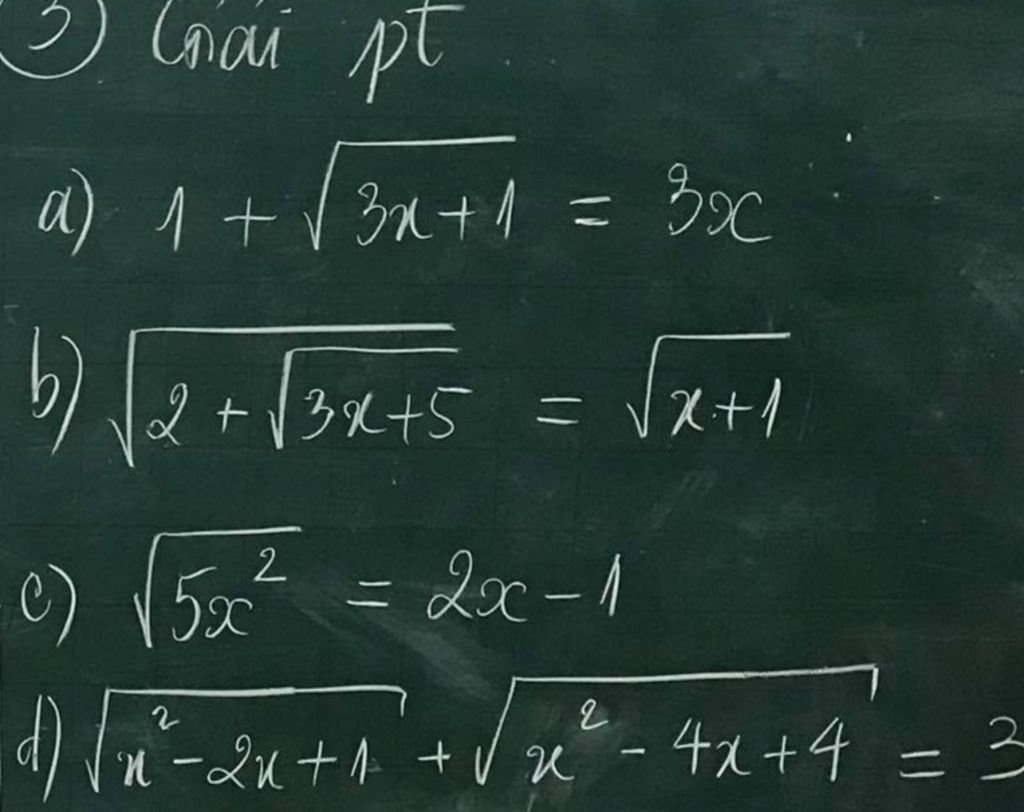 3) Giải pt
a) 1 + √(3x+1) = 3x
b) √(2 + √(3x+5)) = √(x+1)
c) √(5x²) = 2x - 1
d) √(x² - 2x + 1) + √(x² - 4x + 4) = 3